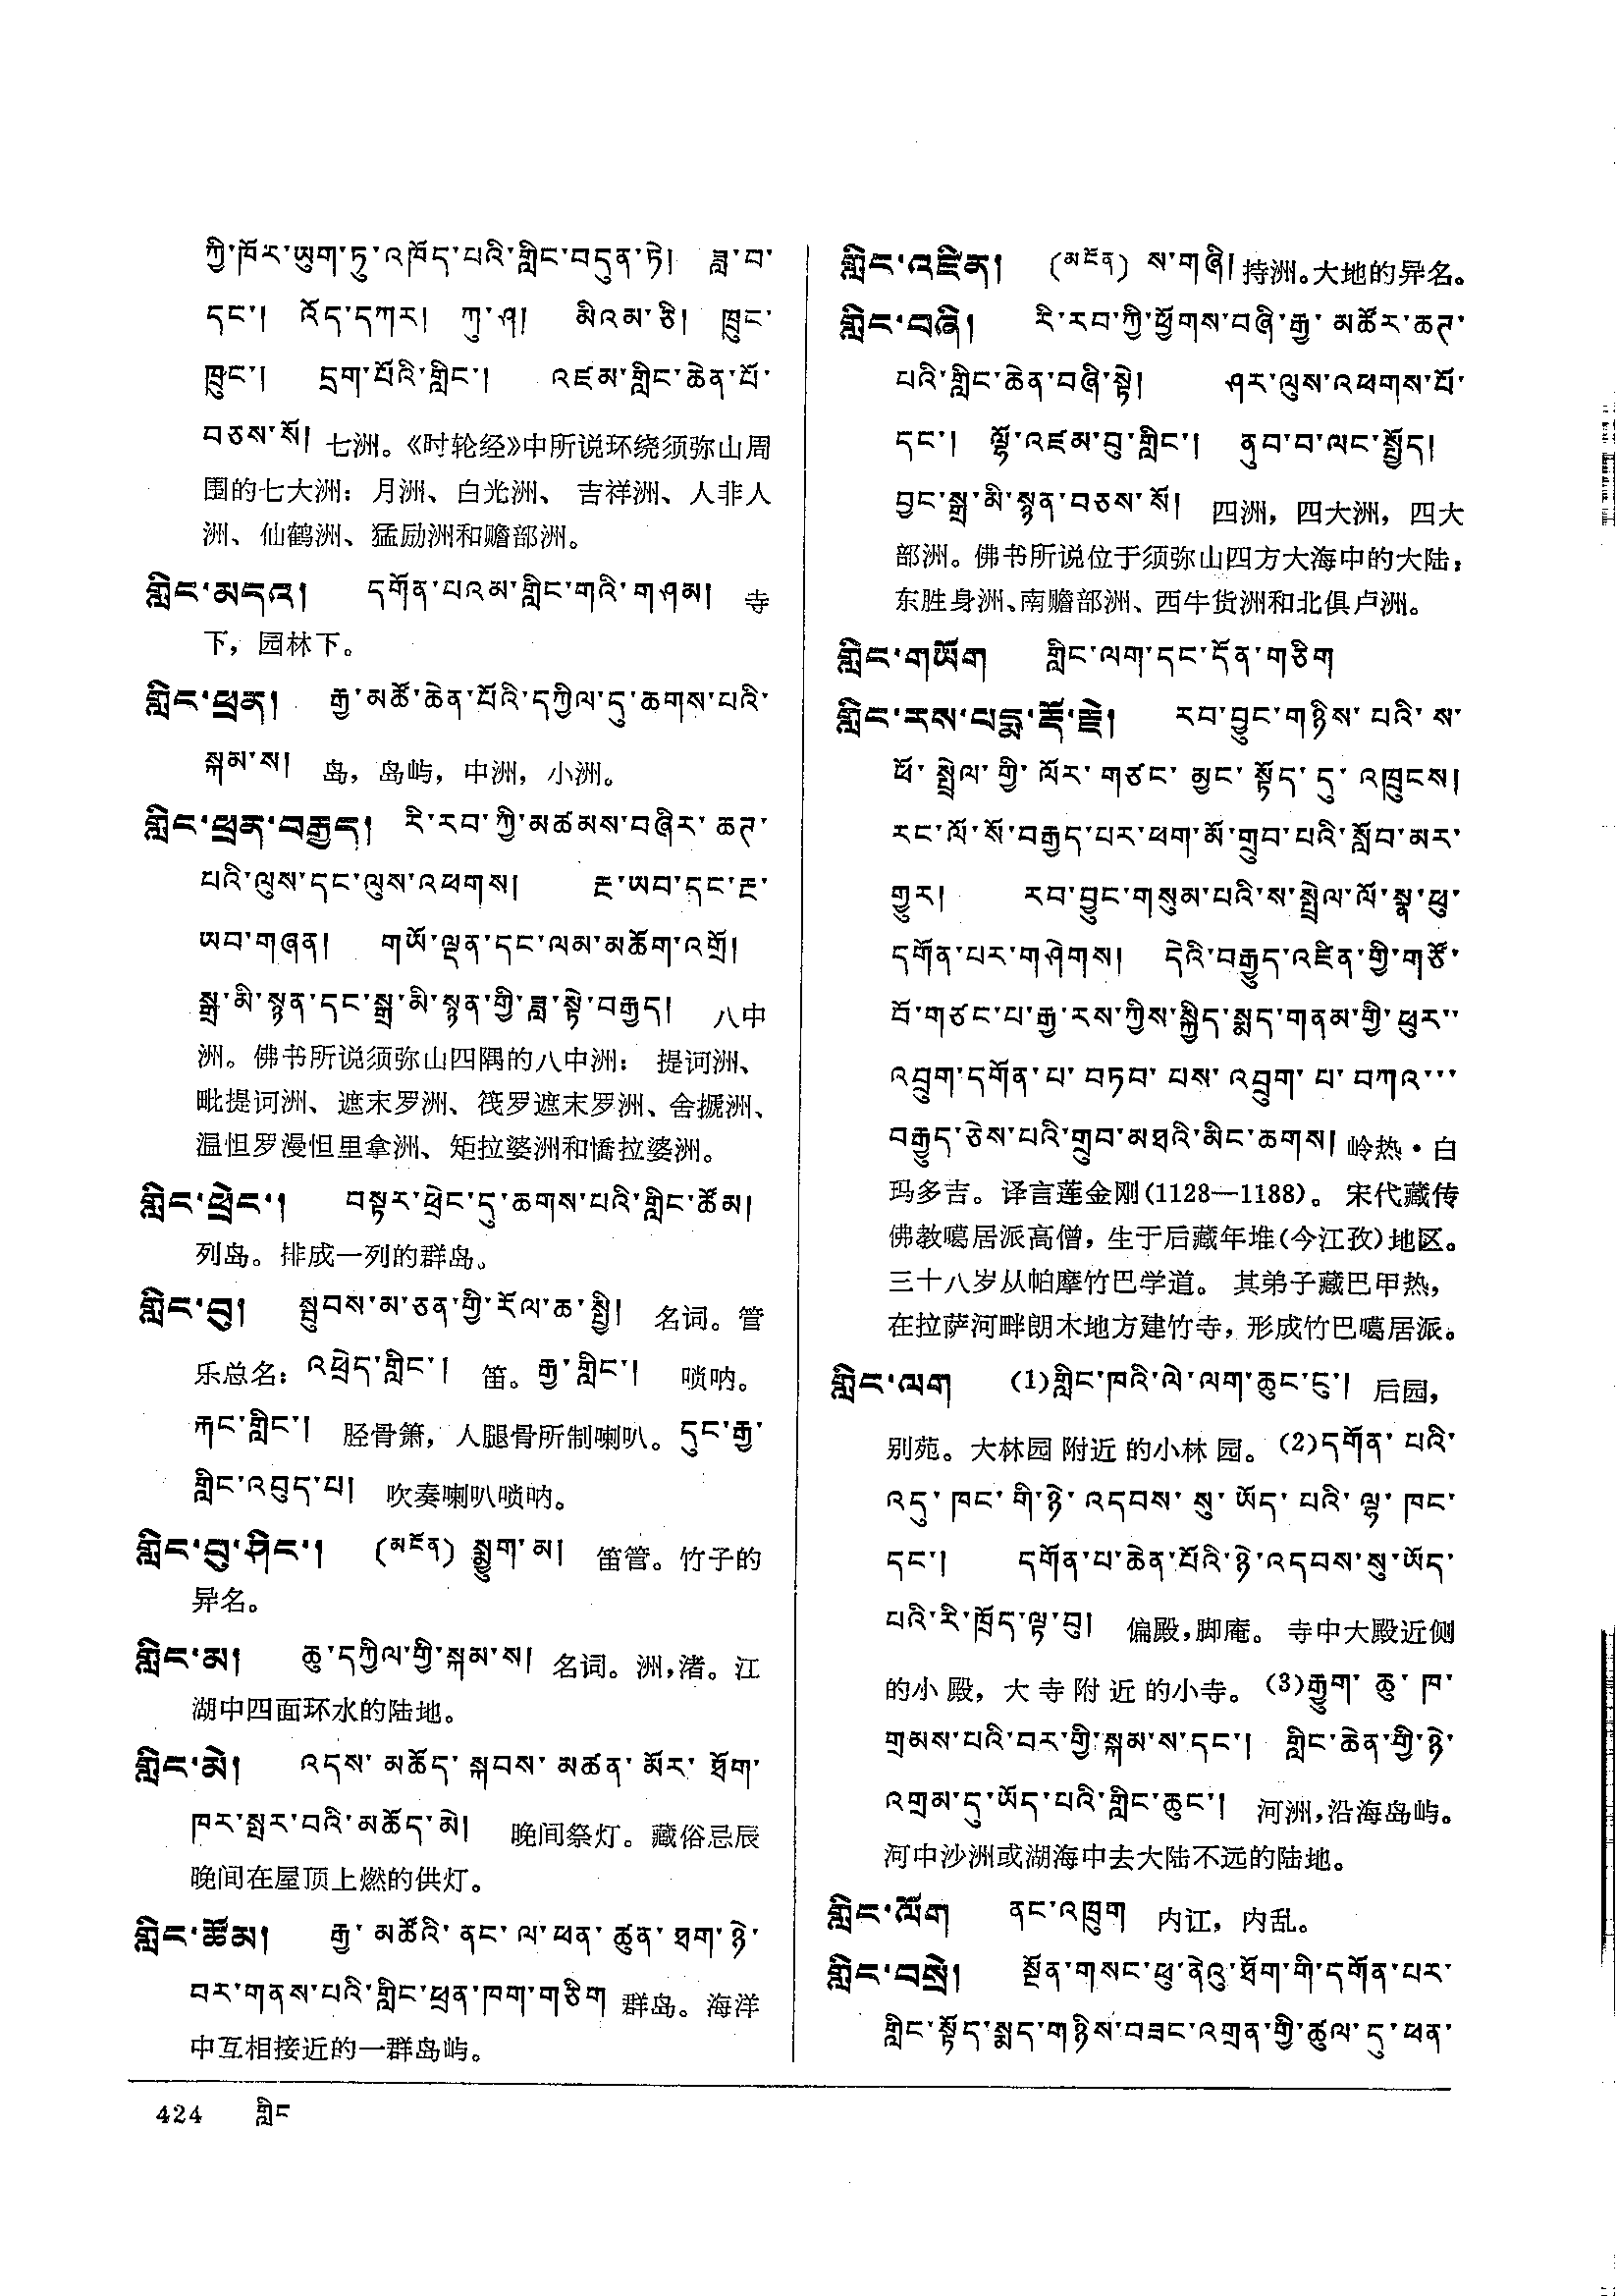 ཀྱི་ཁོར་ཡུག་ཏུ་འཁོད་པའི་གླིང་བདུན་ཏེ། ཟླ་བ་
དང་། འོད་དཀར། ཀུ་ཤ། མིའམ་ཅི། ཁྲུང་
ཁྲུང་། དྲག་པོའི་གླིང་། འཛམ་གླིང་ཆེན་པོ་
བཅས་སོ། 七洲。《时轮经》中所说环绕须弥山周
围的七大洲：月洲、白光洲、吉祥洲、人非人
洲、仙鹤洲、猛励洲和赡部洲。
གླིང་མདའ། དགོན་པའམ་གླིང་གའི་གཤམ། 寺
下，园林下。
གླིང་ཕྲན། རྒྱ་མཚོ་ཆེན་པོའི་དཀྱིལ་དུ་ཆགས་པའི་
སྐམ་ས། 岛，岛屿，中洲，小洲。
གླིང་ཕྲན་བརྒྱད། རི་རབ་ཀྱི་མཚམས་བཞིར་ཆཊ་
པའི་ལུས་དང་ལུས་འཕགས། རྔ་ཡབ་དང་རྔ་
ཡབ་གཞན། གཡོ་ལྡན་དང་ལམ་མཆོག་འགྲོ།
སྒྲ་མི་སྙན་དང་སྒྲ་མི་སྙན་གྱི་ཟླ་སྟེ་བརྒྱད། 八中
洲。佛书所说须弥山四隅的八中洲：提诃洲、
毗提诃洲、遮末罗洲、筏罗遮末罗洲、舍搋洲、
温怛罗漫怛里拿洲、矩拉婆洲和憍拉婆洲。
གླིང་ཕྲེང་། བསྟར་ཕྲེང་དུ་ཆགས་པའི་གླིང་ཚོམ།
列岛。排成一列的群岛。
གླིང་བུ། སྦུབས་མ་ཅན་གྱི་རོལ་ཆ་སྤྱི། 名词。管
乐总名：འཕྲེད་གླིང་། 笛。རྒྱ་གླིང་། 唢呐。
རྐང་གླིང་། 胫骨箫，人腿骨所制喇叭。དུང་རྒྱ་
གླིང་འབུད་པ། 吹奏喇叭唢呐。
གླིང་བུ་ཤིང་། (མངོན) སྨྱུག་མ། 笛管。竹子的
异名。
གླིང་མ། ཆུ་དཀྱིལ་གྱི་སྐམ་ས། 名词。洲，渚。江
湖中四面环水的陆地。
གླིང་མེ། འདས་མཆོད་སྐབས་མཚན་མོར་ཐོག་
ཁར་སྤར་བའི་མཆོད་མེ། 晚间祭灯。藏俗忌辰
晚间在屋顶上燃的供灯。
གླིང་ཚོམ། རྒྱ་མཚོའི་ནང་ལ་ཕན་ཚུན་ཐག་ཉེ་
བར་གནས་པའི་གླིང་ཕྲན་ཁག་གཅིག 群岛。海洋
中互相接近的一群岛屿。
གླིང་འཛིན། (མངོན) ས་གཞི། 持洲。大地的异名。
གླིང་བཞི། རི་རབ་ཀྱི་ཕྱོགས་བཞི་རྒྱ་མཚོར་ཆཊ་
པའི་གླིང་ཆེན་བཞི་སྟེ། ཤར་ལུས་འཕགས་པོ་
དང་། ལྷོ་འཛམ་བུ་གླིང་། ནུབ་བ་ལང་སྤྱོད།
བྱང་སྒྲ་མི་སྙན་བཅས་སོ། 四洲，四大洲，四大
部洲。佛书所说位于须弥山四方大海中的大陆：
东胜身洲、南赡部洲、西牛货洲和北俱卢洲。
གླིང་གཡོག གླིང་ལག་དང་དོན་གཅིག
གླིང་རས་པདྨ་རྡོ་རྗེ། རབ་བྱུང་གཉིས་པའི་ས་
ཕོ་སྤྲེལ་གྱི་ལོར་གཙང་མྱང་སྟོད་དུ་འཁྲུངས།
རང་ལོ་སོ་བརྒྱད་པར་ཕག་མོ་གྲུབ་པའི་སློབ་མར་
གྱུར། རབ་བྱུང་གསུམ་པའི་ས་སྤྲེལ་ལོ་སྣ་ཕུ་
དགོན་པར་གཤེགས། དེའི་བརྒྱུད་འཛིན་གྱི་གཙོ་
བོ་གཙང་པ་རྒྱ་རས་ཀྱིས་སྐྱིད་སྨད་གནམ་གྱི་ཕུར་་
འབྲུག་དགོན་པ་བཏབ་པས་འབྲུག་པ་བཀའ་་་
བརྒྱུད་ཅེས་པའི་གྲུབ་མཐའི་མིང་ཆགས། 岭热·白
玛多吉。译言莲金刚(1128—1188)。宋代藏传
佛教噶居派高僧，生于后藏年堆(今江孜)地区。
三十八岁从帕摩竹巴学道。其弟子藏巴甲热，
在拉萨河畔朗木地方建竹寺，形成竹巴噶居派。
གླིང་ལག (1)གླིང་ཁའི་ལེ་ལག་ཆུང་ངུ་། 后园，
别苑。大林园附近的小林园。(2)དགོན་པའི་
འདུ་ཁང་གི་ཉེ་འདབས་སུ་ཡོད་པའི་ལྷ་ཁང་
དང་། དགོན་པ་ཆེན་པོའི་ཉེ་འདབས་སུ་ཡོད་
པའི་རི་ཁྲོད་ལྟ་བུ། 偏殿，脚庵。寺中大殿近侧
的小殿，大寺附近的小寺。(3)རྒྱུག་ཆུ་ཁ་
གྲམས་པའི་བར་གྱི་སྐམ་ས་དང་། གླིང་ཆེན་གྱི་ཉེ་
འགྲམ་དུ་ཡོད་པའི་གླིང་ཆུང་། 河洲，沿海岛屿。
河中沙洲或湖海中去大陆不远的陆地。
གླིང་ལོག ནང་འཁྲུག 内讧，内乱。
གླིང་བསྲེ། སྔོན་གསང་ཕུ་ནེའུ་ཐོག་གི་དགོན་པར་
གླིང་སྟོད་སྨད་གཉིས་བཟང་འགྲན་གྱི་ཚུལ་དུ་ཕན་
424 གླིང